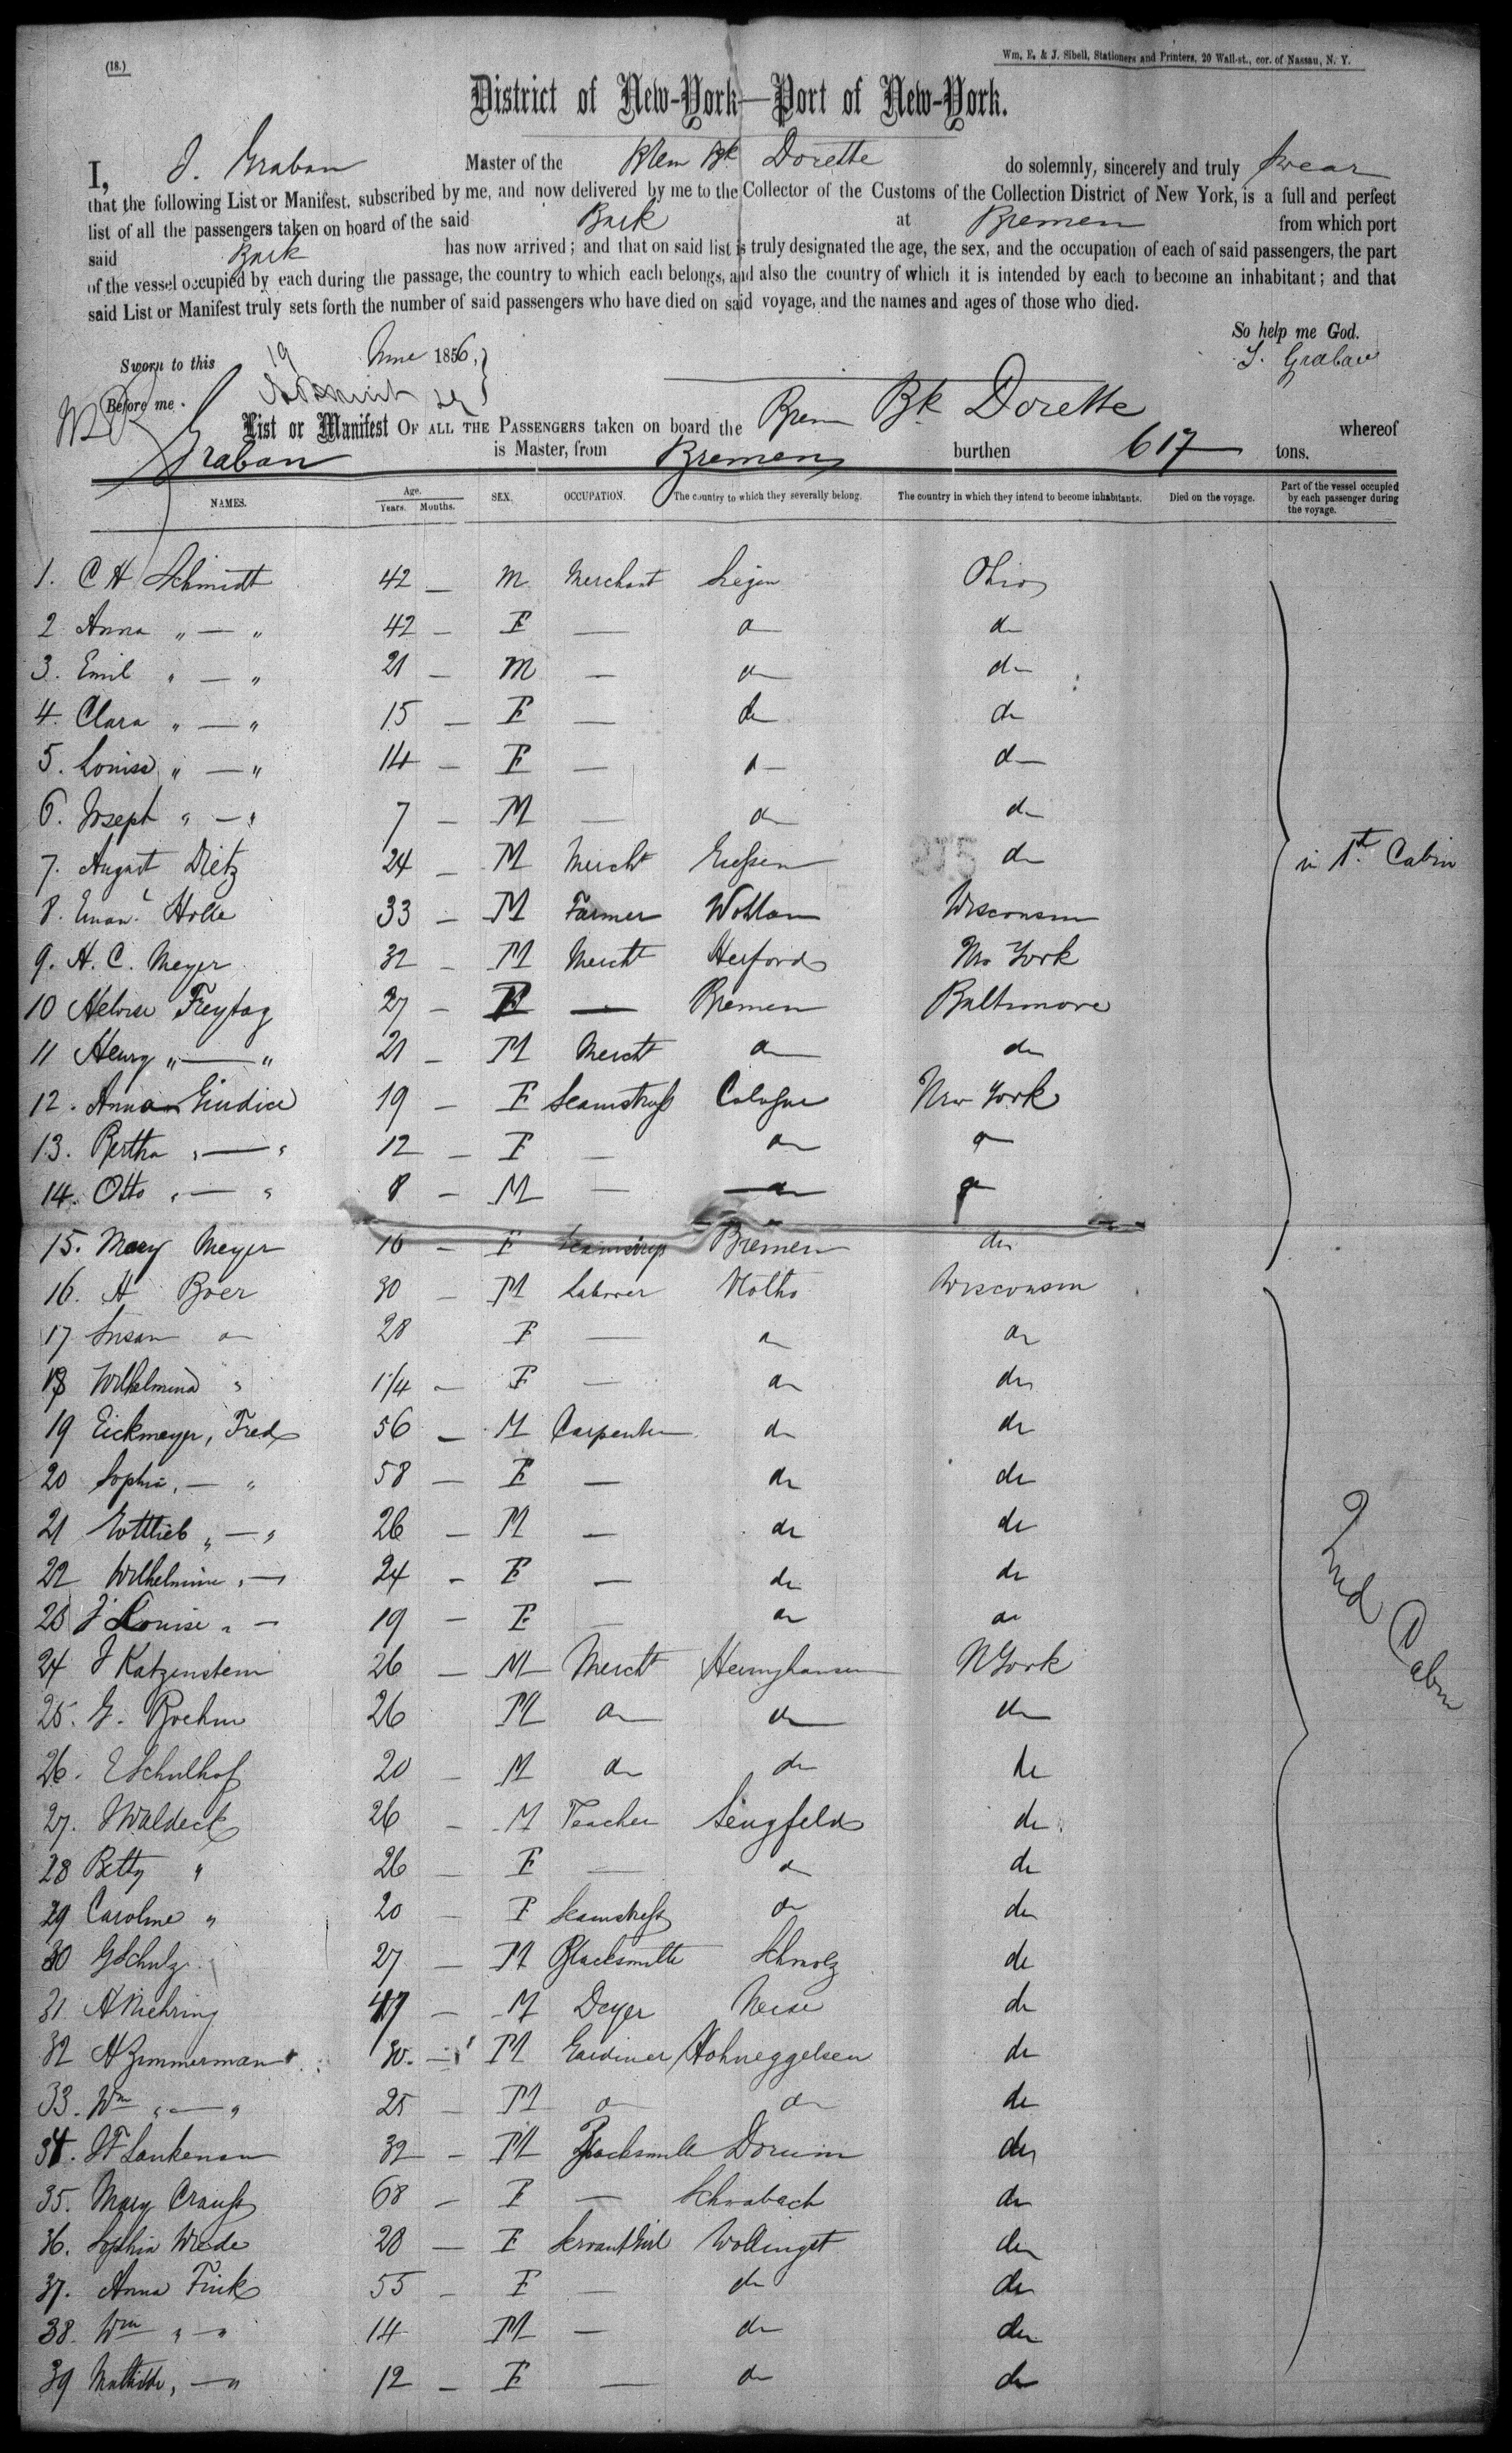 (18.)
Wm. E. & J. Sibell, Stationers and Printers, 20 Wall-st., cor. of Nassau, N. Y.
District of New-York—Port of New-York.
I, J. Graban Master of the Brem Bk Dorette do solemnly, sincerely and truly swear
that the following List or Manifest, subscribed by me, and now delivered by me to the Collector of the Customs of the Collection District of New York, is a full and perfect
list of all the passengers taken on board of the said Bark at Bremen from which port
said Bark has now arrived; and that on said list is truly designated the age, the sex, and the occupation of each of said passengers, the part
of the vessel occupied by each during the passage, the country to which each belongs, and also the country of which it is intended by each to become an inhabitant; and that
said List or Manifest truly sets forth the number of said passengers who have died on said voyage, and the names and ages of those who died.
So help me God.
Sworn to this 19 June 1856,
J. Graban
Before me.
List or Manifest OF ALL THE PASSENGERS taken on board the Brem Bk Dorette whereof
Graban is Master, from Bremen burthen 617 tons.
NAMES. Age. Years. Months. SEX. OCCUPATION. The country to which they severally belong. The country in which they intend to become inhabitants. Died on the voyage. Part of the vessel occupied by each passenger during the voyage.
1. C H Schmidt 42 — M. Merchant Siegen Ohio
2 Anna " — " 42 — F — do do
3. Emil " — " 21 — M — do do
4. Clara " — " 15 — F — do do
5. Louise " — " 14 — F — do do
6. Joseph " — " 7 — M — do do
7. August Dietz 24 — M Mercht Giessen do in 1st Cabin
8. Eman.l Holle 33 — M Farmer Wohlau Wisconsin
9. H. C. Meyer 32 — M Mercht Herford New York
10 Heloise Freytag 27 — F — Bremen Baltimore
11 Henry " — " 21 — M Mercht do do
12. Anna Giudice 19 — F Seamstress Cologne New York
13. Bertha " — " 12 — F — do do
14. Otto " — " 8 — M — do do
15. Mary Meyer 16 — F Seamstress Bremen do
16. H Boer 30 — M Laborer Vlotho Wisconsin
17 Susan do 28 F — do do
18 Wilhelmina " 1 1/4 — F — do do
19 Eickmeyer, Fred 56 — M Carpenter do do
20 Sophia, — " 58 — F — do do
21 Gottlieb " — " 26 — M — do do
22 Wilhelmine " — 24 — F — do do
23 J Louise " — 19 — F — do do
24 J Katzenstein 26 — M Mercht N York
25. G. Boehm 26 M do do do
26. E Schulhof 20 — M do do do
2nd Cabin
27. J Waldeck 26 — M Teacher Lengfeld do
28 Betty " 26 — F — do do
29 Caroline " 20 — F Seamstress do do
30 G Schulz 27 — M Blacksmith do
31 A Niehring 47 — M Dyer Neise do
32 H Zimmerman 30. — M Gardiner Hohneggelsen do
33. Wm " — " 25 — M do do do
34. H F Lankenau 32 — M Blacksmith Dorum do
35. Mary Crauss 68 — F — Schwabach do
36. Sophia Wrede 28 — F Servant Girl Wollingst do
37. Anna Fink 55 — F — do do
38. Wm " — " 14 M — do do
39 Mathilde, — " 12 — F — do do